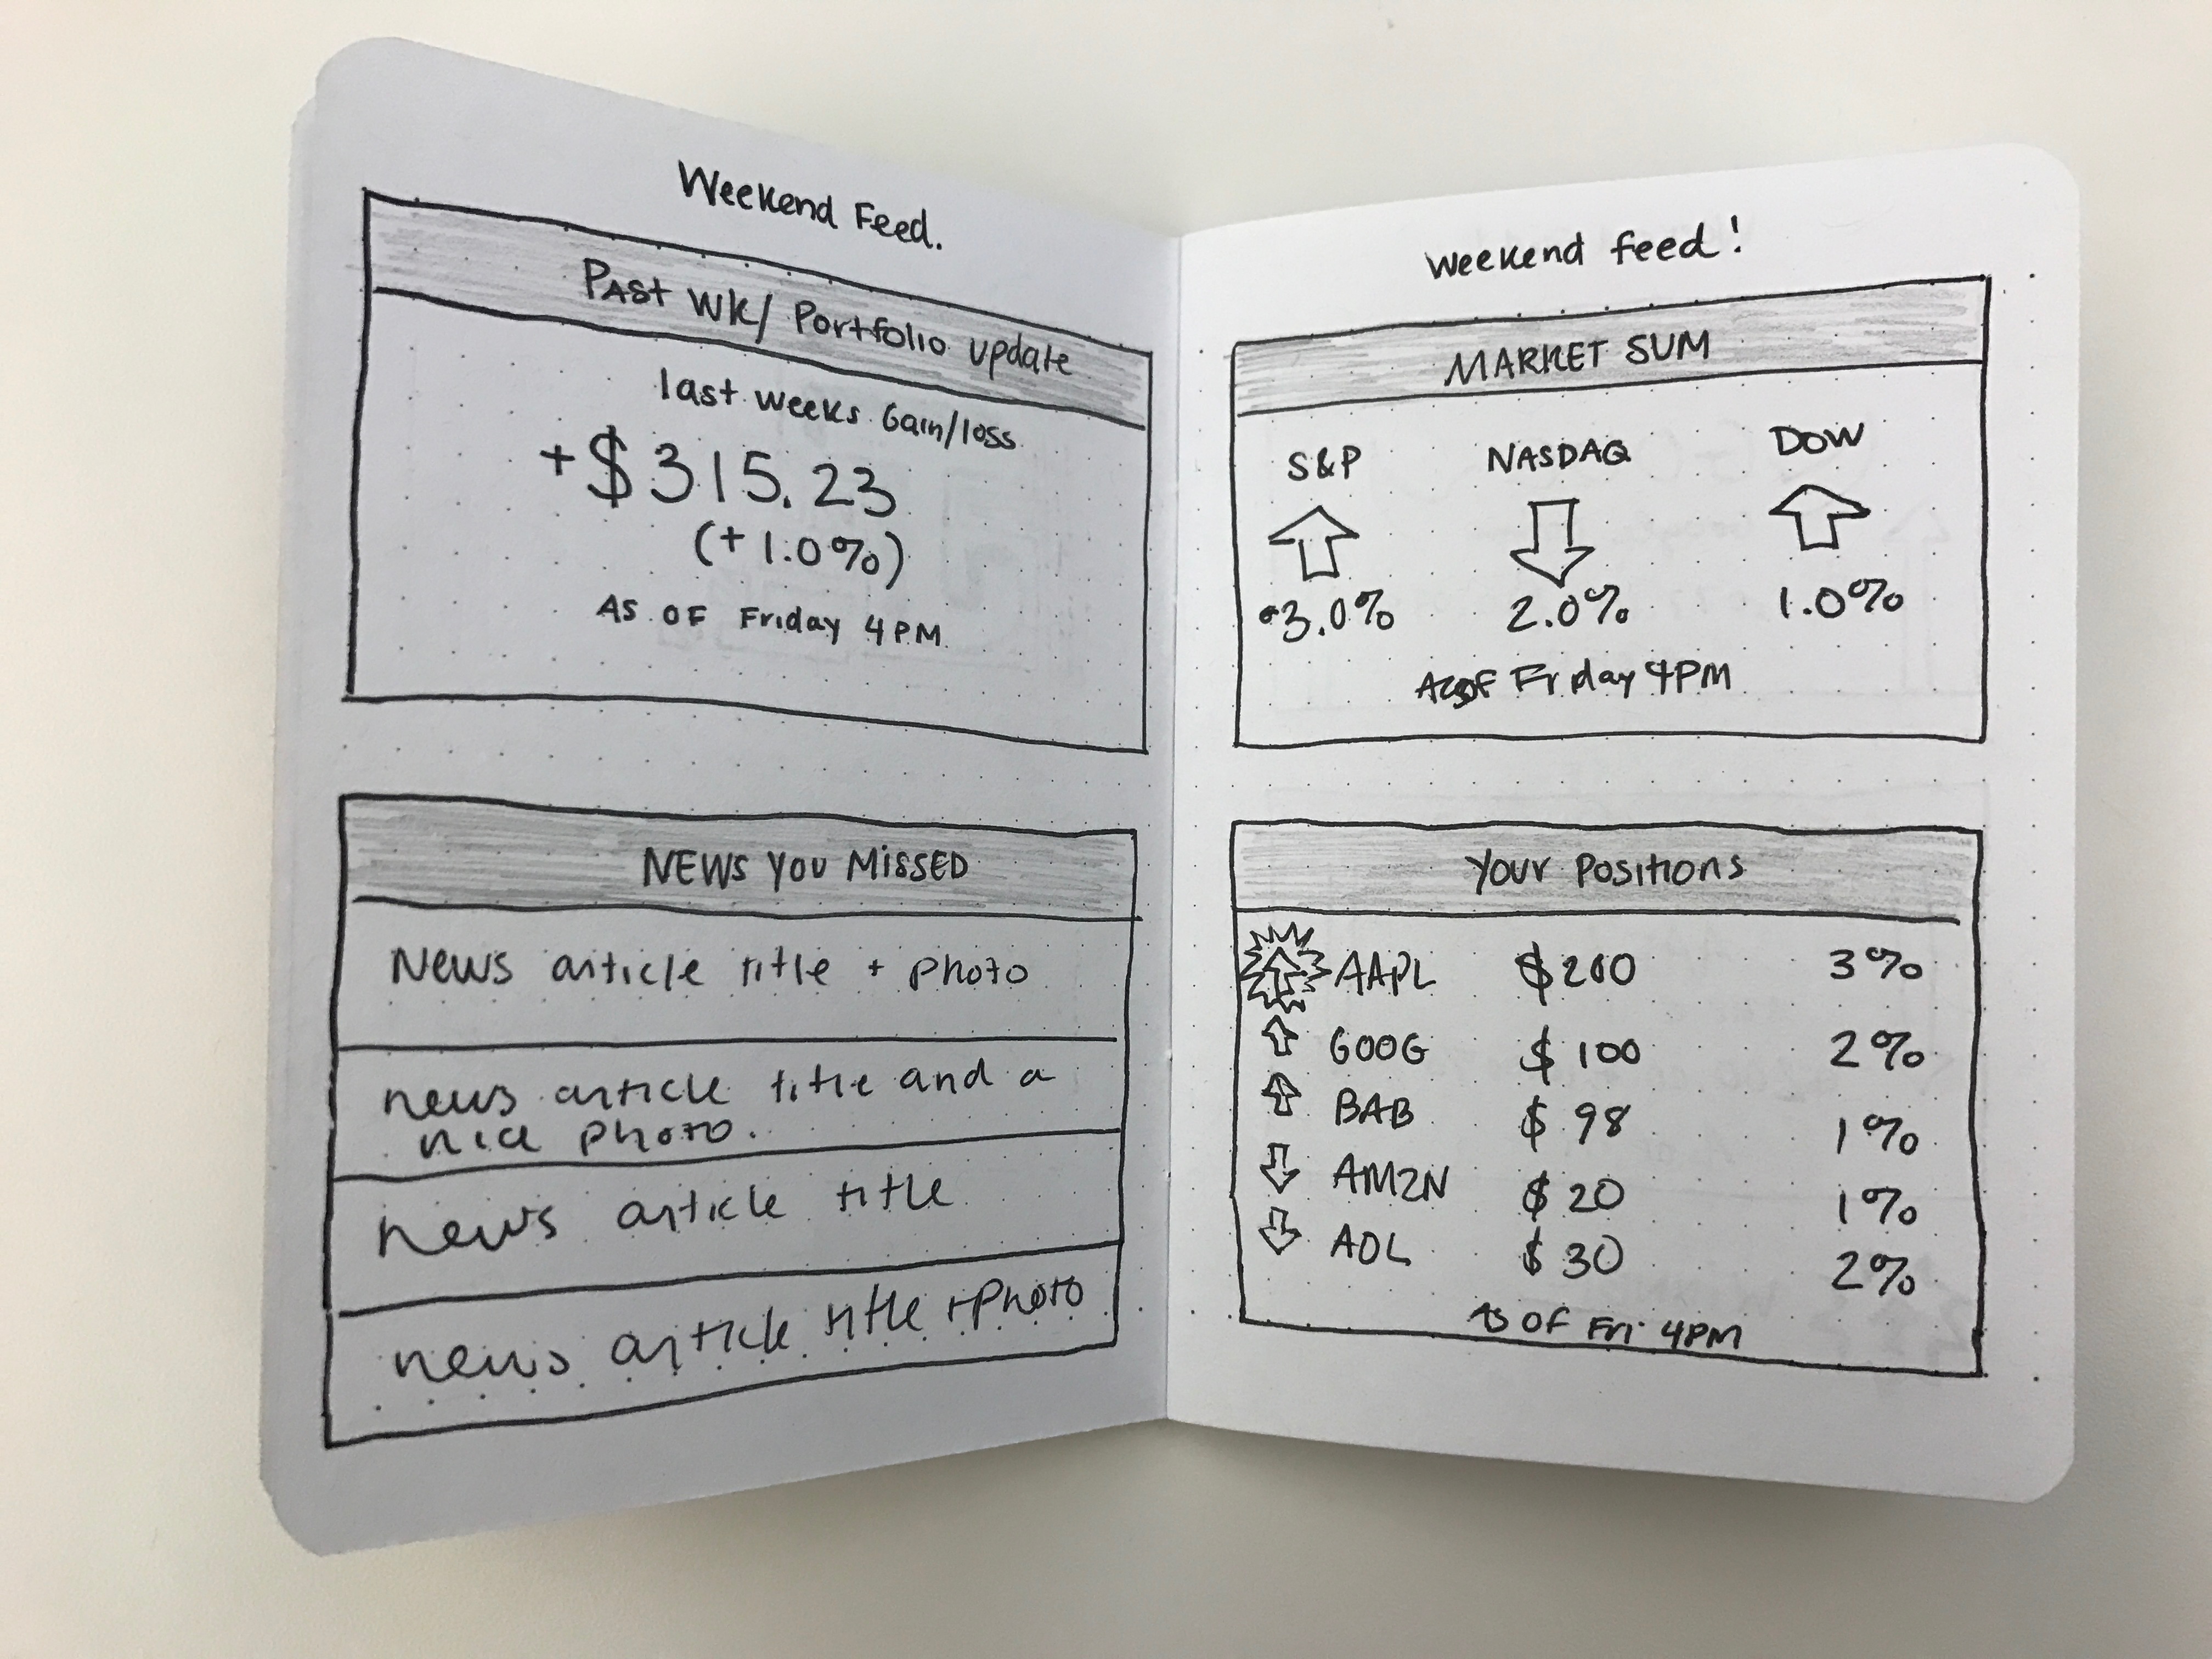 Weekend Feed.
Past Wk/ Portfolio update
last weeks Gain/loss
+$315.23
(+1.0%)
AS OF Friday 4PM
NEWS YOU MISSED
News article title + photo
news article title and a
nice photo.
news article title
news article title + Photo
weekend feed!
MARKET SUM
S&P NASDAQ DOW
3.0% 2.0% 1.0%
As of Friday 4PM
Your Positions
AAPL $200 3%
GOOG $100 2%
BAB $98 1%
AMZN $20 1%
AOL $30 2%
As OF Fri 4PM